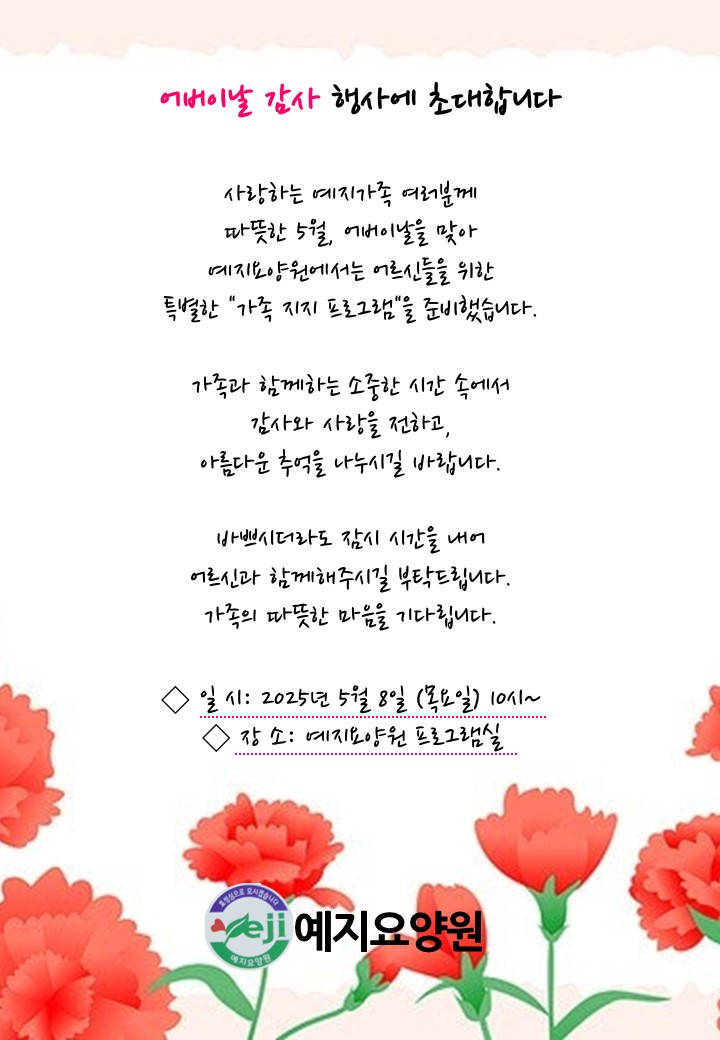 어버이날 감사 행사에 초대합니다
사랑하는 예지가족 여러분께
따뜻한 5월, 어버이날을 맞아
예지요양원에서는 어르신들을 위한
특별한 "가족 지지 프로그램"을 준비했습니다.
가족과 함께하는 소중한 시간 속에서
감사와 사랑을 전하고,
아름다운 추억을 나누시길 바랍니다.
바쁘시더라도 잠시 시간을 내어
어르신과 함께해주시길 부탁드립니다.
가족의 따뜻한 마음을 기다립니다.
◇ 일 시: 2025년 5월 8일 (목요일) 10시~
◇ 장 소: 예지요양원 프로그램실
효행심으로 모시겠습니다
Yeji
예지요양원
예지요양원